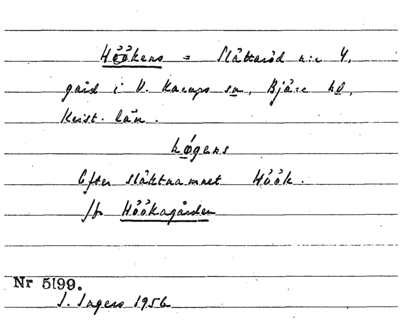 Höökens = Slättaröd n:r 4,
gård i V. Karups sn, Bjäre hd,
Krist. län.
högens
Efter släktnamnet Höök.
Jfr Höökagården
Nr 5199.
I. Ingers 1956